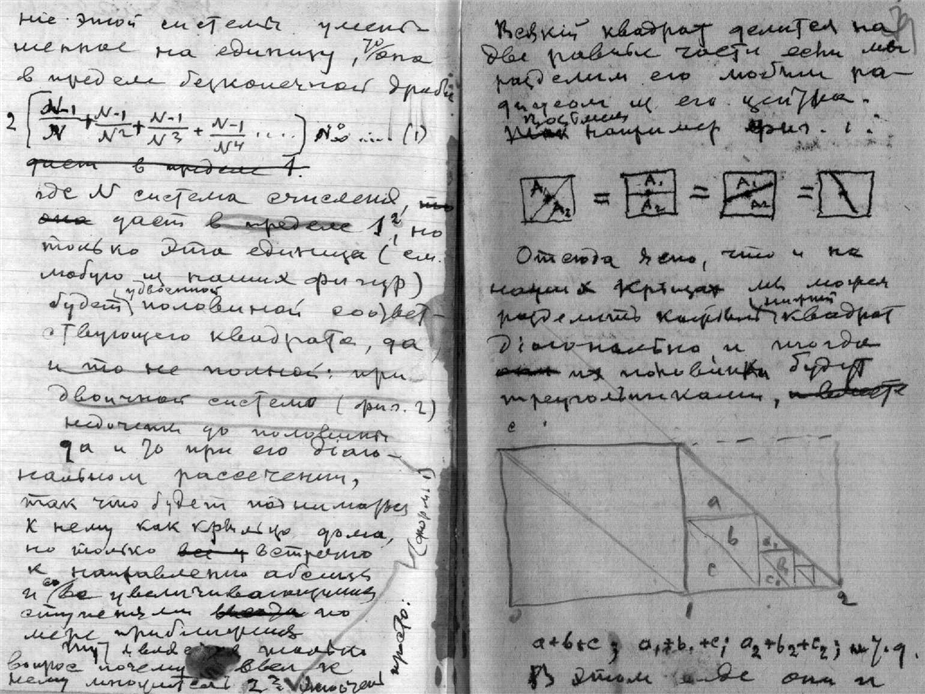 ніе этой системы умень-
шенное на единицу, то она
в пределе безконечной дроби
2 [N-1/N + N-1/N² + N-1/N³ + N-1/N⁴ ....] .... (1)
дает в пределе 1.
где N система счисленія,
она дает в пределе 1², но
только эта единица (см.
любую из наших фигур)
будет удвоенной половиной соответ-
ствующего квадрата, да
и то не полной: при
двоичной системе (фиг. 2)
до половины
да и то при его діаго-
нальном разсечении,
так что будет подниматься
к нему как крыльцо дома,
но только встречно
к направленію абсцисс
и со увеличивающимися
ступенями по
мере приближения
является только
вопрос почему ввел к
нему множитель 2
просто:
Всякій квадрат делится на
две равныя части если мы
разделим его любым ра-
диусом из его центра.
например фиг. 1:
A₁ A₂ = A₁ A₂ = A₁ A₂ =
Отсюда ясно, что и на
наших крыльцах мы можем
разделить каждый квадрат
діагонально и тогда
их половинки будут
треугольниками,
c
a
b
c
a₁
b₁
c₁
0 1 2
a+b+c; a₁+b₁+c₁; a₂+b₂+c₂; и т.д.
В этом виде они и